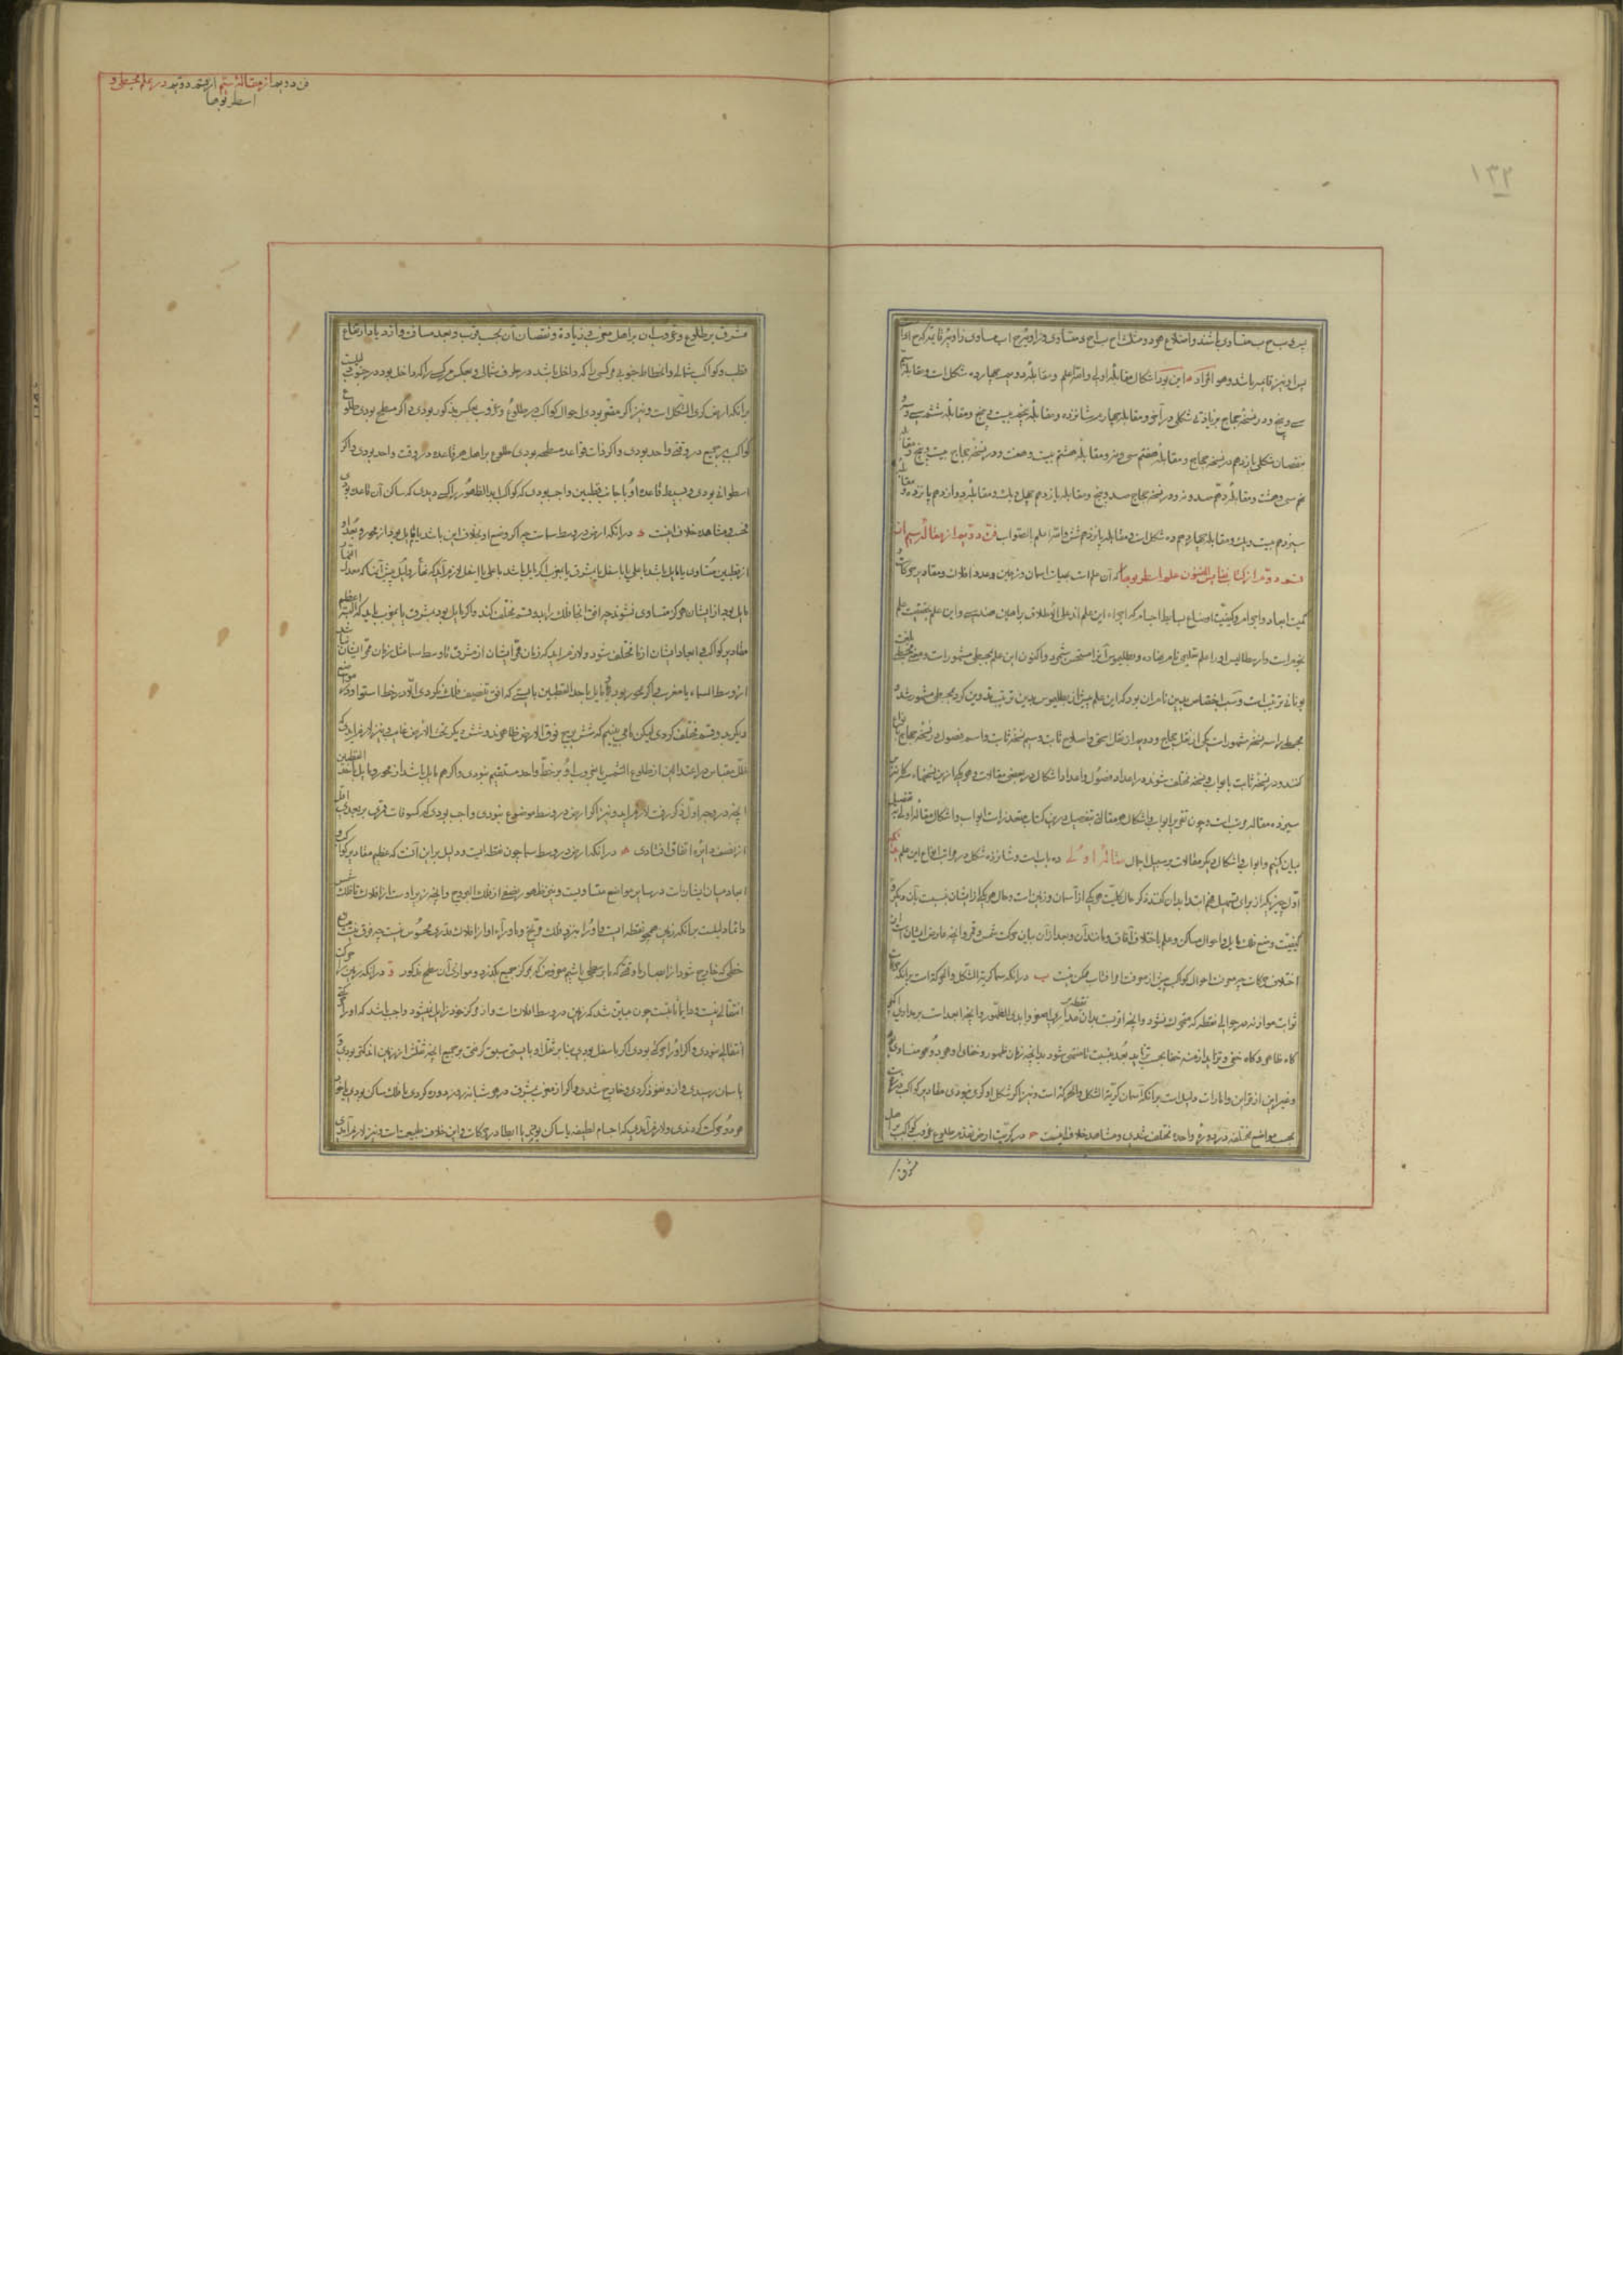 ۱۳۲
پس ب ح ب متساوی باشند و اضلاع هر دو مثلث اح ب اح متساوی و زاویهٔ ح اب مساوی زاویهٔ قایمه ح اد
پس او نیز قایمه باشد و هو المراد این بود اشکال مقابلهٔ اولی و الله اعلم و مقابلهٔ دویم چهارده شکل است و مقابلهٔ سیم
سی و پنج و در نسخهٔ حجاج بزیادتی شکلی در آخر و مقابلهٔ چهارم شانزده و مقابلهٔ پنجم بیست و پنج و مقابلهٔ ششم سی و سه
بنقصان شکل یازدهم در نسخهٔ حجاج و مقابلهٔ هفتم سی و نه و مقابلهٔ هشتم بیست و هفت و در نسخهٔ حجاج بیست و پنج و مقابلهٔ
نهم سی و هشت و مقابلهٔ دهم صد و نه و در نسخهٔ حجاج صد و پنج و مقابلهٔ یازدهم چهل و یک و مقابلهٔ دوازدهم پانزده و مقابلهٔ
سیزدهم بیست و یک و مقابلهٔ چهاردهم ده شکل است و مقابلهٔ پانزدهم شش و الله اعلم بالصواب فن دویم از مقالهٔ سیم از
قسم دویم از کتاب نفایس الفنون علم اسطرنومیا که آن علم است بهیات آسمان و زمین و عدد افلاک و مقادیر حرکات
کمیت ابعاد و اجرام و کیفیت اوضاع بسایط اجسام که اجزاء این علم اند علی الاطلاق براهین هندسی و این علم بحقیقت علم
نجوم است و ارسطاطالیس او را علم تعلیمی نام نهاده و بطلیموس آنرا مستحسن شمرد و اکنون این علم بمجسطی مشهور است و معنی مجسطی بلغت
یونانی ترتیب است و سبب اختصاص بدین نام آن بود که این علم پیش از بطلیموس بدین ترتیب تدوین نکرده بمجسطی مشهور شد و
مجسطی را سه نسخهٔ مشهور است یکی از نقل حجاج و دویم از نقل اسحق و اصلاح ثابت و سیم نسخهٔ ثابت و اسم فصول در نسخهٔ حجاج
کنند و در نسخهٔ ثابت بابواب و نسخه مختلف شوند در اعداد فصول و اعداد اشکال در بعضی مقالات و هر یک ازین نسخها مشتمل بر
سیزده مقاله مرتب است و چون تقریر ابواب و اشکال هر مقالتی بتفصیل درین کتاب متعذر است ابواب و اشکال مقالهٔ اولی بتفصیل
بیان کنیم و ابواب و اشکال دیگر مقالات بر سبیل اجمال مقالهٔ اولی ده باب است و شانزده شکل در مراتب انواع این علم
اول چیزیکه از برای تسهیل فهم ابتدا بدان کنند ذکر حال کلیت هر یک از آسمان و زمین است و حال هر یک از ایشان بنسبت با آن دیگر
کیفیت وضع فلک مایل و احوال مساکن و علم باختلاف آفاق و مانند آن و بعد از آن بیان حرکت شمس و قمر و آنچه عارض ایشان است از
اختلاف حرکات چه معرفت احوال کواکب پیش از معرفت او آفتاب ممکن نیست ب در آنکه سما کریة الشکل و الحرکة است برانکه
ثوابت موازنه در حوالی نقطه که متحرک نشود و آنچه اقرب است بدان نقطه مدار او اصغر و ابدی الظهور و آنچه ابعد است بر مداری اکبر
گاه ظاهر و گاه خفی و تزاید ازمنهٔ خفا بحسب تزاید بعد بنسبت تا منتهی شود بدانچه زمان ظهور و خفای او هر دو متساوی
و غیر این از قراین و امارات دلیل است برانکه آسمان کریة الشکل و الحرکة است و نیز اگر شکل او کری نبودی مقادیر کواکب
بحسب مواضع مختلفه در دورهٔ واحده مختلف شدی و مشاهده خلاف اینست ح در کریت ارض تقدم طلوع و غروب کواکب اهل
مشرق را
فن دویم از مقالهٔ سیم از قسم دویم در علم مجسطی و
اسطرنومیا
مشرق بر طلوع و غروب آن بر اهل مغرب و زیادة و نقصان آن بحسب قرب و بعد مسافت و ازدیاد ارتفاع
قطب و کواکب شمالی و انحطاط جنوبی مر کسی را که داخل باشد در طرف شمالی و بعکس مر کسی را که داخل بود در جنوب دلیلست
برانکه ارض کری الشکل است و نیز اگر مقعر بودی احوال کواکب در طلوع و غروب بعکس مذکور بودی و اگر مسطح بودی طلوع
کواکب بر جمیع در وقت واحد بودی و اگر ذات قواعد مسطحه بودی طلوع بر اهل هر قاعده در وقت واحد بودی و اگر
اسطوانی بودی و بسیط قاعدهٔ او با جانب قطبین واجب بودی که کواکب ابدی الظهور را کسی ندیدی که ساکن آن قاعده بودی
تحت و مشاهده خلاف اینست د در آنکه ارض در وسط سماست چه اگر وضع او بخلاف این باشد یا مایل بود از محور و بعد او
از قطبین متساوی یا مایل باشد باعلی یا باسفل یا بمشرق یا بمغرب اگر مایل باشد باعلی یا اسفل لازم آید که
مایل بود از ایشان هرگز متساوی نشوند چه افق آنجا فلک را بدو قسم مختلف کند و اگر مایل بود بمشرق یا بمغرب باید که اعظم
مقادیر کواکب و ابعاد ایشان از ما مختلف شود و لازم آید که زمان ممر ایشان از مشرق تا وسط سما مثل زمان ممر ایشان نباشد
از وسط السماء تا مغرب و اگر بمحور بود و مایل باحد القطبین بایستی که افق تنصیف فلک نکردی الا در خط استوا و در مواضع
دیگر بدو قسم مختلف کردی لیکن ما می بینیم که شش برج فوق الارض ظاهرند و شش دیگر تحت الارض غایب و نیز لازم آید که
ظل مقیاس در اعتدالین از طلوع الشمس تا غروب او بر خط واحد مستقیم نبودی و اگر هم مایل باشد از محور و مایل باحد القطبین
آنچه در وجه اول ذکر رفت لازم آید و نیز اگر ارض در وسط موضوع نبودی واجب بودی که کسوفات قمری بر بعدی اقل
از نصف دایره اتفاق افتادی ه در آنکه ارض در وسط سما چون نقطه ایست و دلیل بر این آنست که عظم مقادیر کواکب و
ابعاد میان ایشان است در سایر مواضع متساویست و نیز ظهور نصفی از فلک البروج و آنچه زیر اوست از افلاک تا فلک شمس
دایما دلیلست برانکه زمین همچو نقطه ایست و او را بنزد فلک مریخ و ماوراء او از افلاک قدری محسوس نیست چه فرق نیست میان
خطی که خارج شود از ابصار ما وقتی که ما بر سطحی باشیم مفروض که بمرکز جمیع بگذرد و موازی آن سطح مذکور و در آنکه زمین را حرکت
انتقالی نیست و دایما ثابتست چون مبین شد که زمین در وسط افلاک است و از مرکز خود زایل نمیشود واجب باشد که او را
انتقالی نبودی و اگر او را حرکتی بودی اگر باسفل بودی بنا بر ثقل او بایستی سبق گرفتی بر جمیع آنچه ثقلش از زمین اندکتر بودی و
بآسمان رسیدی و از و نفوذ کردی و خارج شدی و اگر از مغرب بمشرق در هر شبانه روز دوره کردی یا فلک ساکن بودی یا متحرک
هر دو حرکت کردندی و لازم آمدی که اجسام لطیفه یا ساکن بودی یا ابطا در حرکات و این خلاف طبیعت است و نیز لازم آمدی